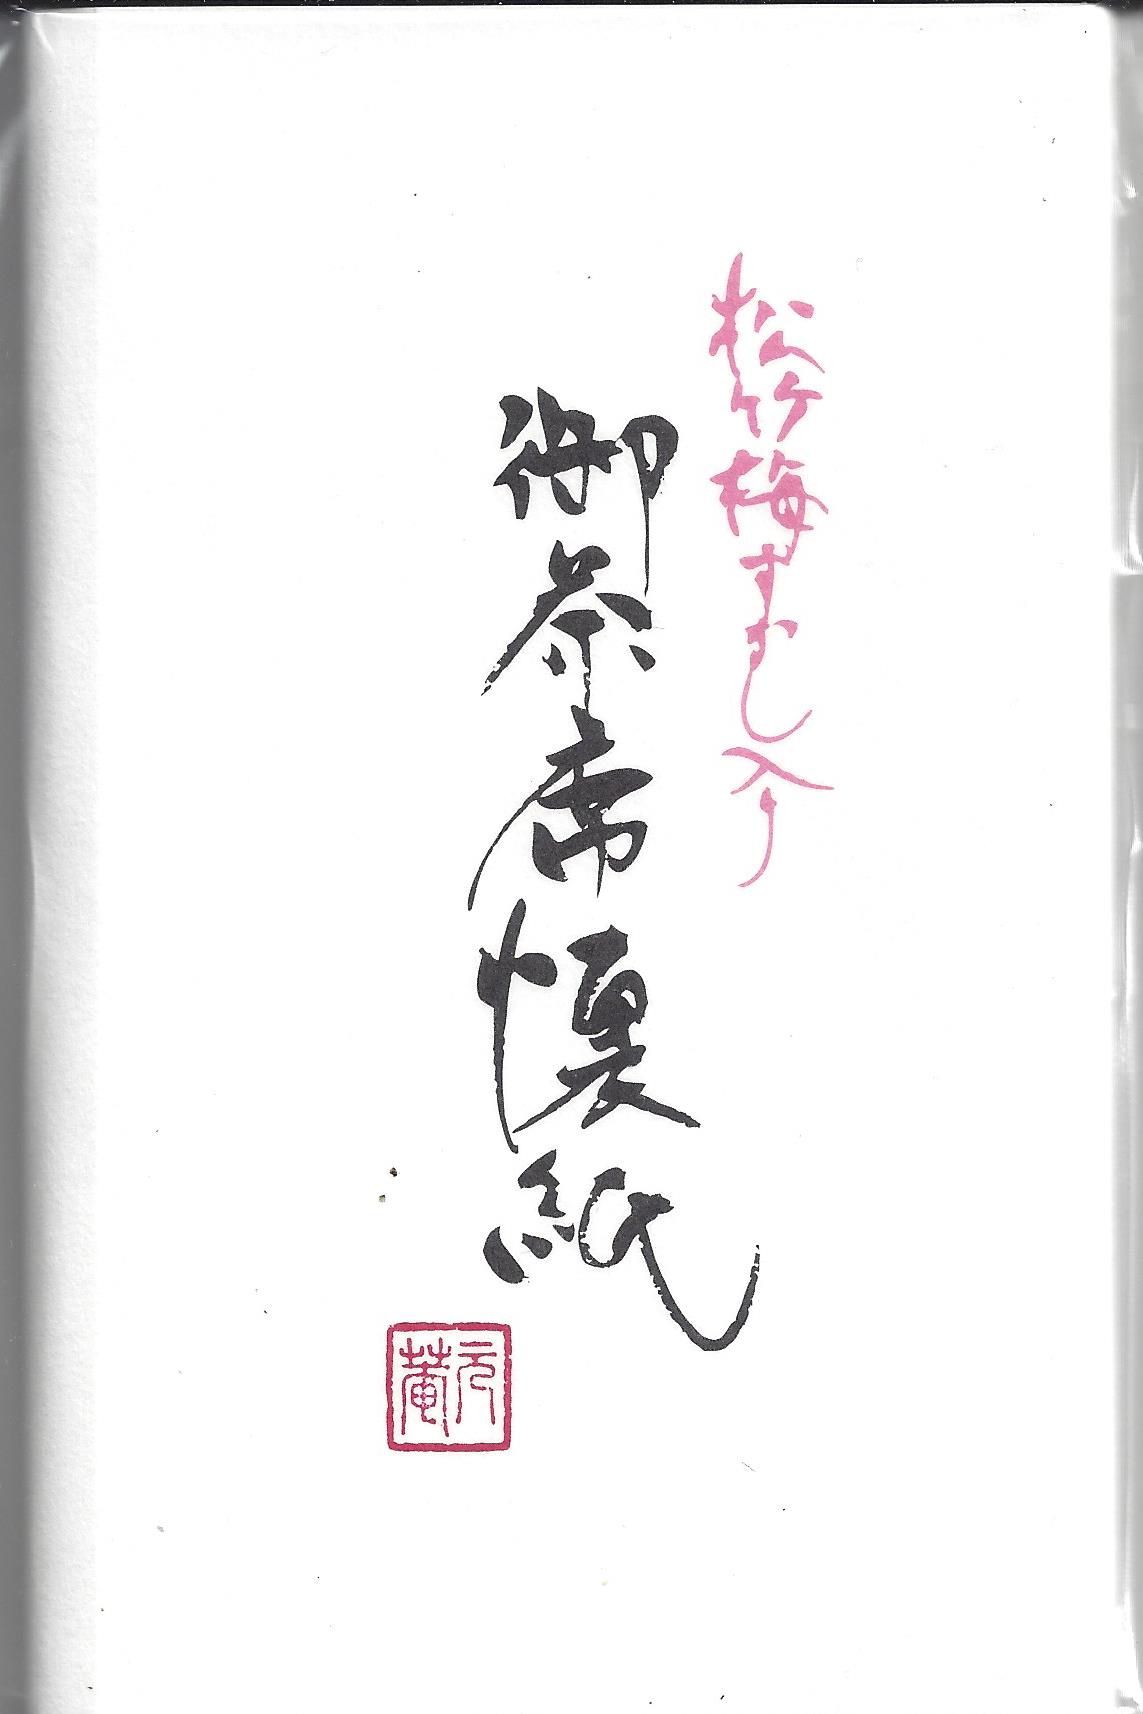 松竹梅すかし入り
御茶席懐紙
元菴